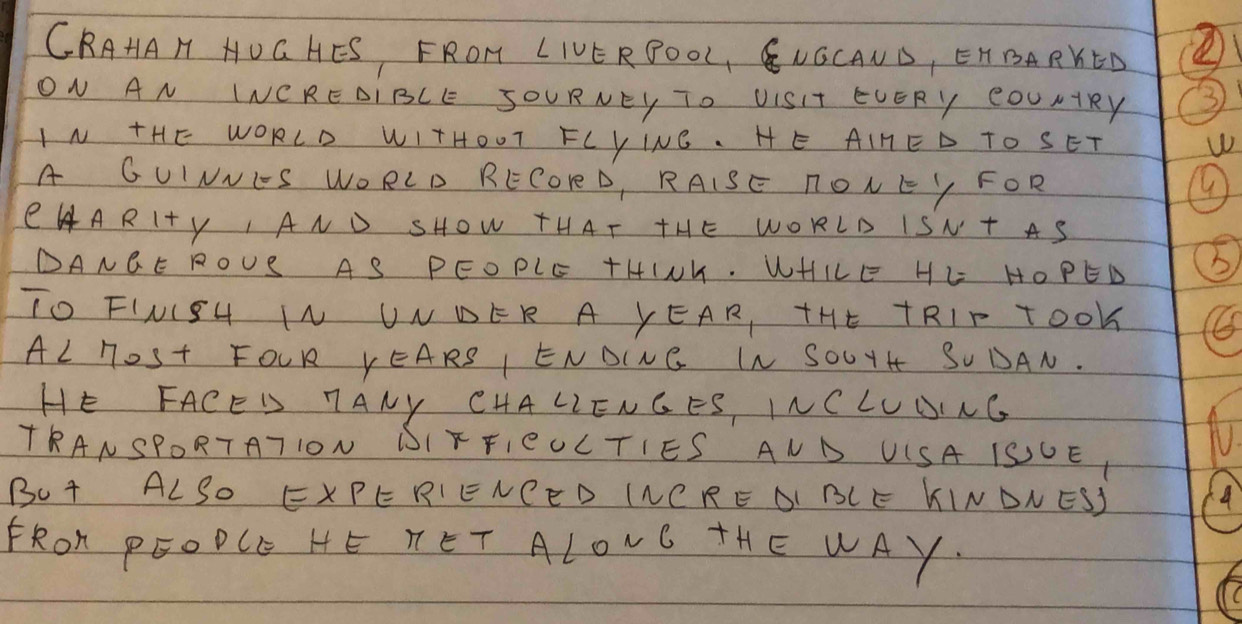 GRAHAM HUGHES, FROM LIVERPOOL, ENGLAND, EMBARKED
ON AN INCREDIBLE JOURNEY TO VISIT EVERY COUNTRY
IN THE WORLD WITHOUT FLYING. HE AIMED TO SET
A GUINNES WORLD RECORD, RAISE MONEY FOR
CHARITY, AND SHOW THAT THE WORLD ISN'T AS
DANGEROUS AS PEOPLE THINK. WHILE HE HOPED
TO FINISH IN UNDER A YEAR, THE TRIP TOOK
ALMOST FOUR YEARS, ENDING IN SOUTH SUDAN.
HE FACED MANY CHALLENGES, INCLUDING
TRANSPORTATION DIFFICULTIES AND VISA ISSUE,
BUT ALSO EXPERIENCED INCREDIBLE KINDNESS
FROM PEOPLE HE MET ALONG THE WAY.
2
3
W
4
5
6
N